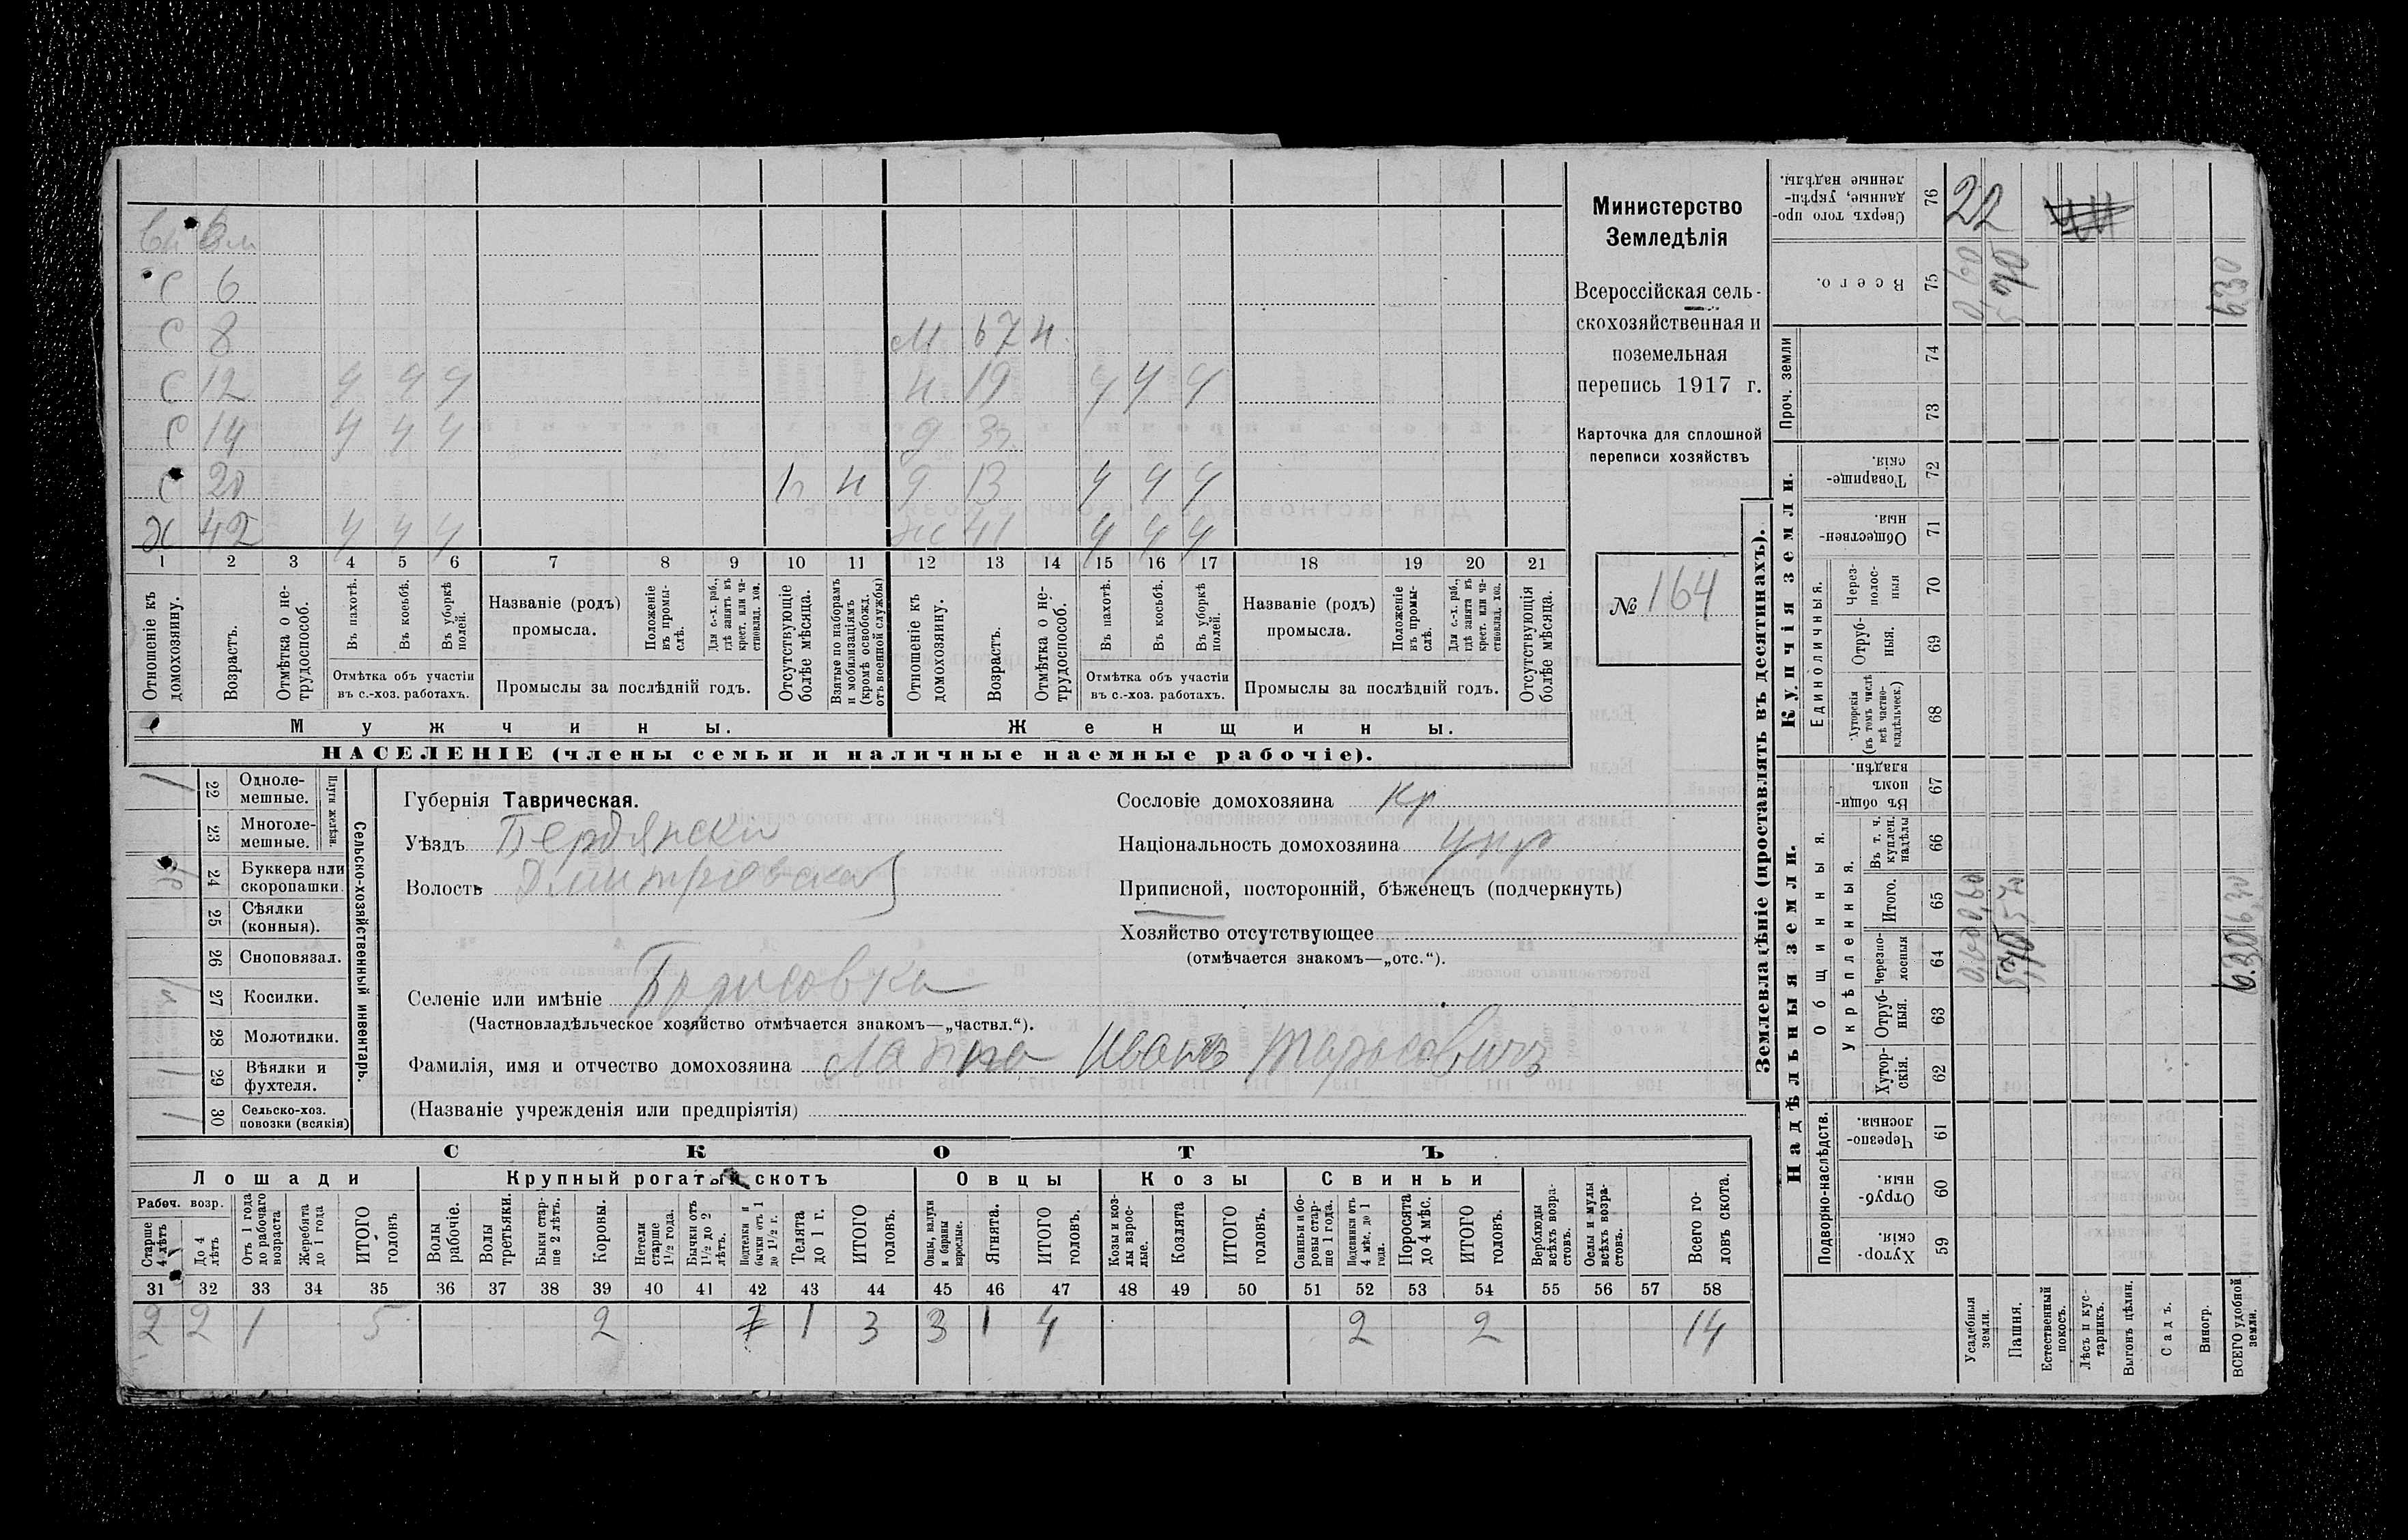 С 6
С 8 М 67 н
С 12 у у у Н 19 у у у
С 14 у у у
С 20 н Д 13 у у у
Х 42 у у у Ж 41 у у у
1 2 3 4 5 6 7 8 9 10 11 12 13 14 15 16 17 18 19 20 21
Отношеніе къ домохозяину.
Возрастъ.
Отмѣтка о не-
трудоспособ.
Въ пахотѣ.
Въ косьбѣ.
Въ уборкѣ полей.
Отмѣтка объ участіи
въ с.-хоз. работахъ.
Названіе (родъ)
промысла.
Положеніе въ промы-
слѣ.
Для с.-х. раб.,
гдѣ занятъ въ
крест. или ча-
стновлад. хоз.
Промыслы за послѣдній годъ.
Отсутствующіе
болѣе мѣсяца.
Взятые по наборамъ
и мобилизаціямъ
(кромѣ освобожд.
отъ военной службы)
Отношеніе къ
домохозяину.
Возрастъ.
Отмѣтка о не-
трудоспособ.
Въ пахотѣ.
Въ косьбѣ.
Въ уборкѣ
полей.
Отмѣтка объ участіи
въ с.-хоз. работахъ.
Названіе (родъ)
промысла.
Положеніе
въ промы-
слѣ.
Для с.-х. раб.,
гдѣ занята въ
крест. или ча-
стновлад. хоз.
Промыслы за послѣдній годъ.
Отсутствующія
болѣе мѣсяца.
Мужчины.
Женщины.
НАСЕЛЕНІЕ (члены семьи и наличные наемные рабочіе).
Министерство
Земледѣлія
Всероссійская сель-
скохозяйственная и
поземельная
перепись 1917 г.
Карточка для сплошной
переписи хозяйствъ
№ 164
1 22 Одноле-
мешные.
23 Многоле-
мешные.
24 Буккера или
скоропашки.
25 Сѣялки
(конныя).
26 Сноповязал.
27 Косилки.
28 Молотилки.
1 29 Вѣялки и
фухтеля.
1 30 Сельско-хоз.
повозки (всякія)
Сельско-хозяйственный инвентарь.
Губернія Таврическая.
Уѣздъ Бердянски
Волость
Селеніе или имѣніе Борисовка
(Частновладѣльческое хозяйство отмѣчается знакомъ—„частвл.“).
Фамилія, имя и отчество домохозяина Лапка Иванъ Тарасовичъ
(Названіе учрежденія или предпріятія)
Сословіе домохозяина кр
Національность домохозяина укр
Приписной, посторонній, бѣженецъ (подчеркнуть)
Хозяйство отсутствующее
(отмѣчается знакомъ—„отс.“).
СКОТЪ
Лошади
Рабоч. возр.
Старше
4 лѣтъ
До 4
лѣтъ
Отъ 1 года
до рабочаго
возраста
Жеребята
до 1 года
ИТОГО
головъ
Крупный рогатый скотъ
Волы
рабочіе.
Волы
третьяки.
Быки стар-
ше 2 лѣтъ.
Коровы.
Нетели
старше
1½ года.
Бычки отъ
1½ до 2
лѣтъ.
Подтелки и
бычки отъ 1
до 1½ г.
Телята
до 1 г.
ИТОГО
головъ.
Овцы
Овцы, валухи
и бараны
взрослые.
Ягнята.
ИТОГО
головъ.
Козы
Козы и коз-
лы взрос-
лые.
Козлята
ИТОГО
головъ.
Свиньи
Свиньи и бо-
ровы стар-
ше 1 года.
Подсвинки отъ
4 мѣс. до 1
года.
Поросята
до 4 мѣс.
ИТОГО
головъ.
Верблюды
всѣхъ возра-
стовъ.
Ослы и мулы
всѣхъ возра-
стовъ.
Всего го-
ловъ скота.
31 32 33 34 35 36 37 38 39 40 41 42 43 44 45 46 47 48 49 50 51 52 53 54 55 56 57 58
2 2 1 5 2 1 3 3 1 4 2 2 14
Землевладѣніе (проставлять въ десятинахъ).
Сверхъ того про-
данные, укрѣп-
ленные надѣлы.
76 22
Всего.
75 6.30
Проч. земли
74
73
Купчія земли.
Товарище-
скія.
72
Обществен-
ныя.
71
Единоличныя.
Через-
полос-
ныя
70
Отруб-
ныя.
69
Хуторскія
(въ томъ числѣ
всѣ частно-
владѣльческ.)
68
Надѣльныя земли.
Общинныя.
Въ общин-
номъ
владѣн.
67
Укрѣпленныя.
Въ т. ч.
куплен.
надѣлы
66
Итого.
65 6,30
Черезпо-
лосныя
64 6.30
Отруб-
ныя.
63
Хутор-
скія.
62
Подворно-наслѣдств.
Черезпо-
лосныя
61
Отруб-
ныя.
60
Хутор-
скія.
59
Усадебныя
земли.
Пашня.
Естественный
покосъ.
Лѣсъ и кус-
тарникъ.
Выгонъ цѣлин.
Садъ.
Виногр.
ВСЕГО удобной
земли.